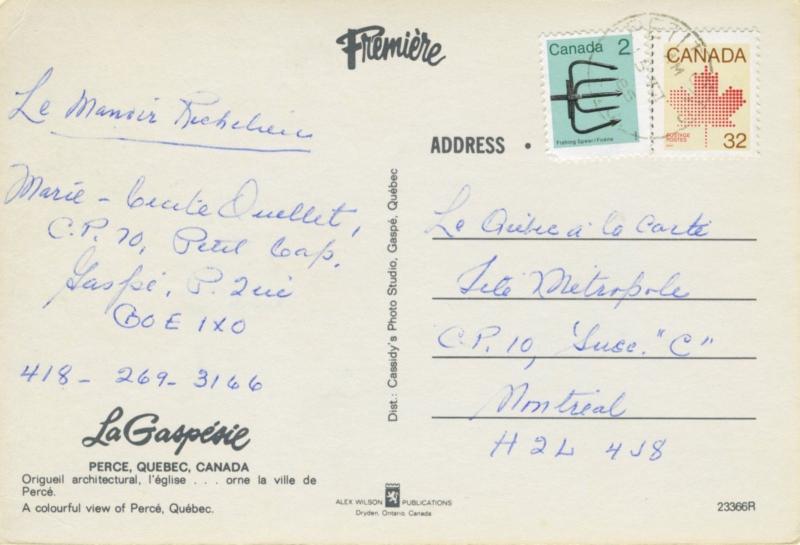 Première
Le Manoir Richelieu
Marie-Cecile Ouellet,
C.P. 70, Petit Cap,
Gaspé, P. Qué
G0E 1X0
418-269-3166
La Gaspésie
PERCE, QUEBEC, CANADA
Origueil architectural, l'église . . . orne la ville de
Percé.
A colourful view of Percé, Québec.
Dist.: Cassidy's Photo Studio, Gaspé, Québec
ALEX WILSON PUBLICATIONS
Dryden, Ontario, Canada
Canada 2
Fishing Spear / Foëne
CANADA
POSTAGE
POSTES
32
ADDRESS •
Le Québec à la carte
Télé Métropole
C.P. 10, Succ. "C"
Montréal
H2L 4J8
23366R